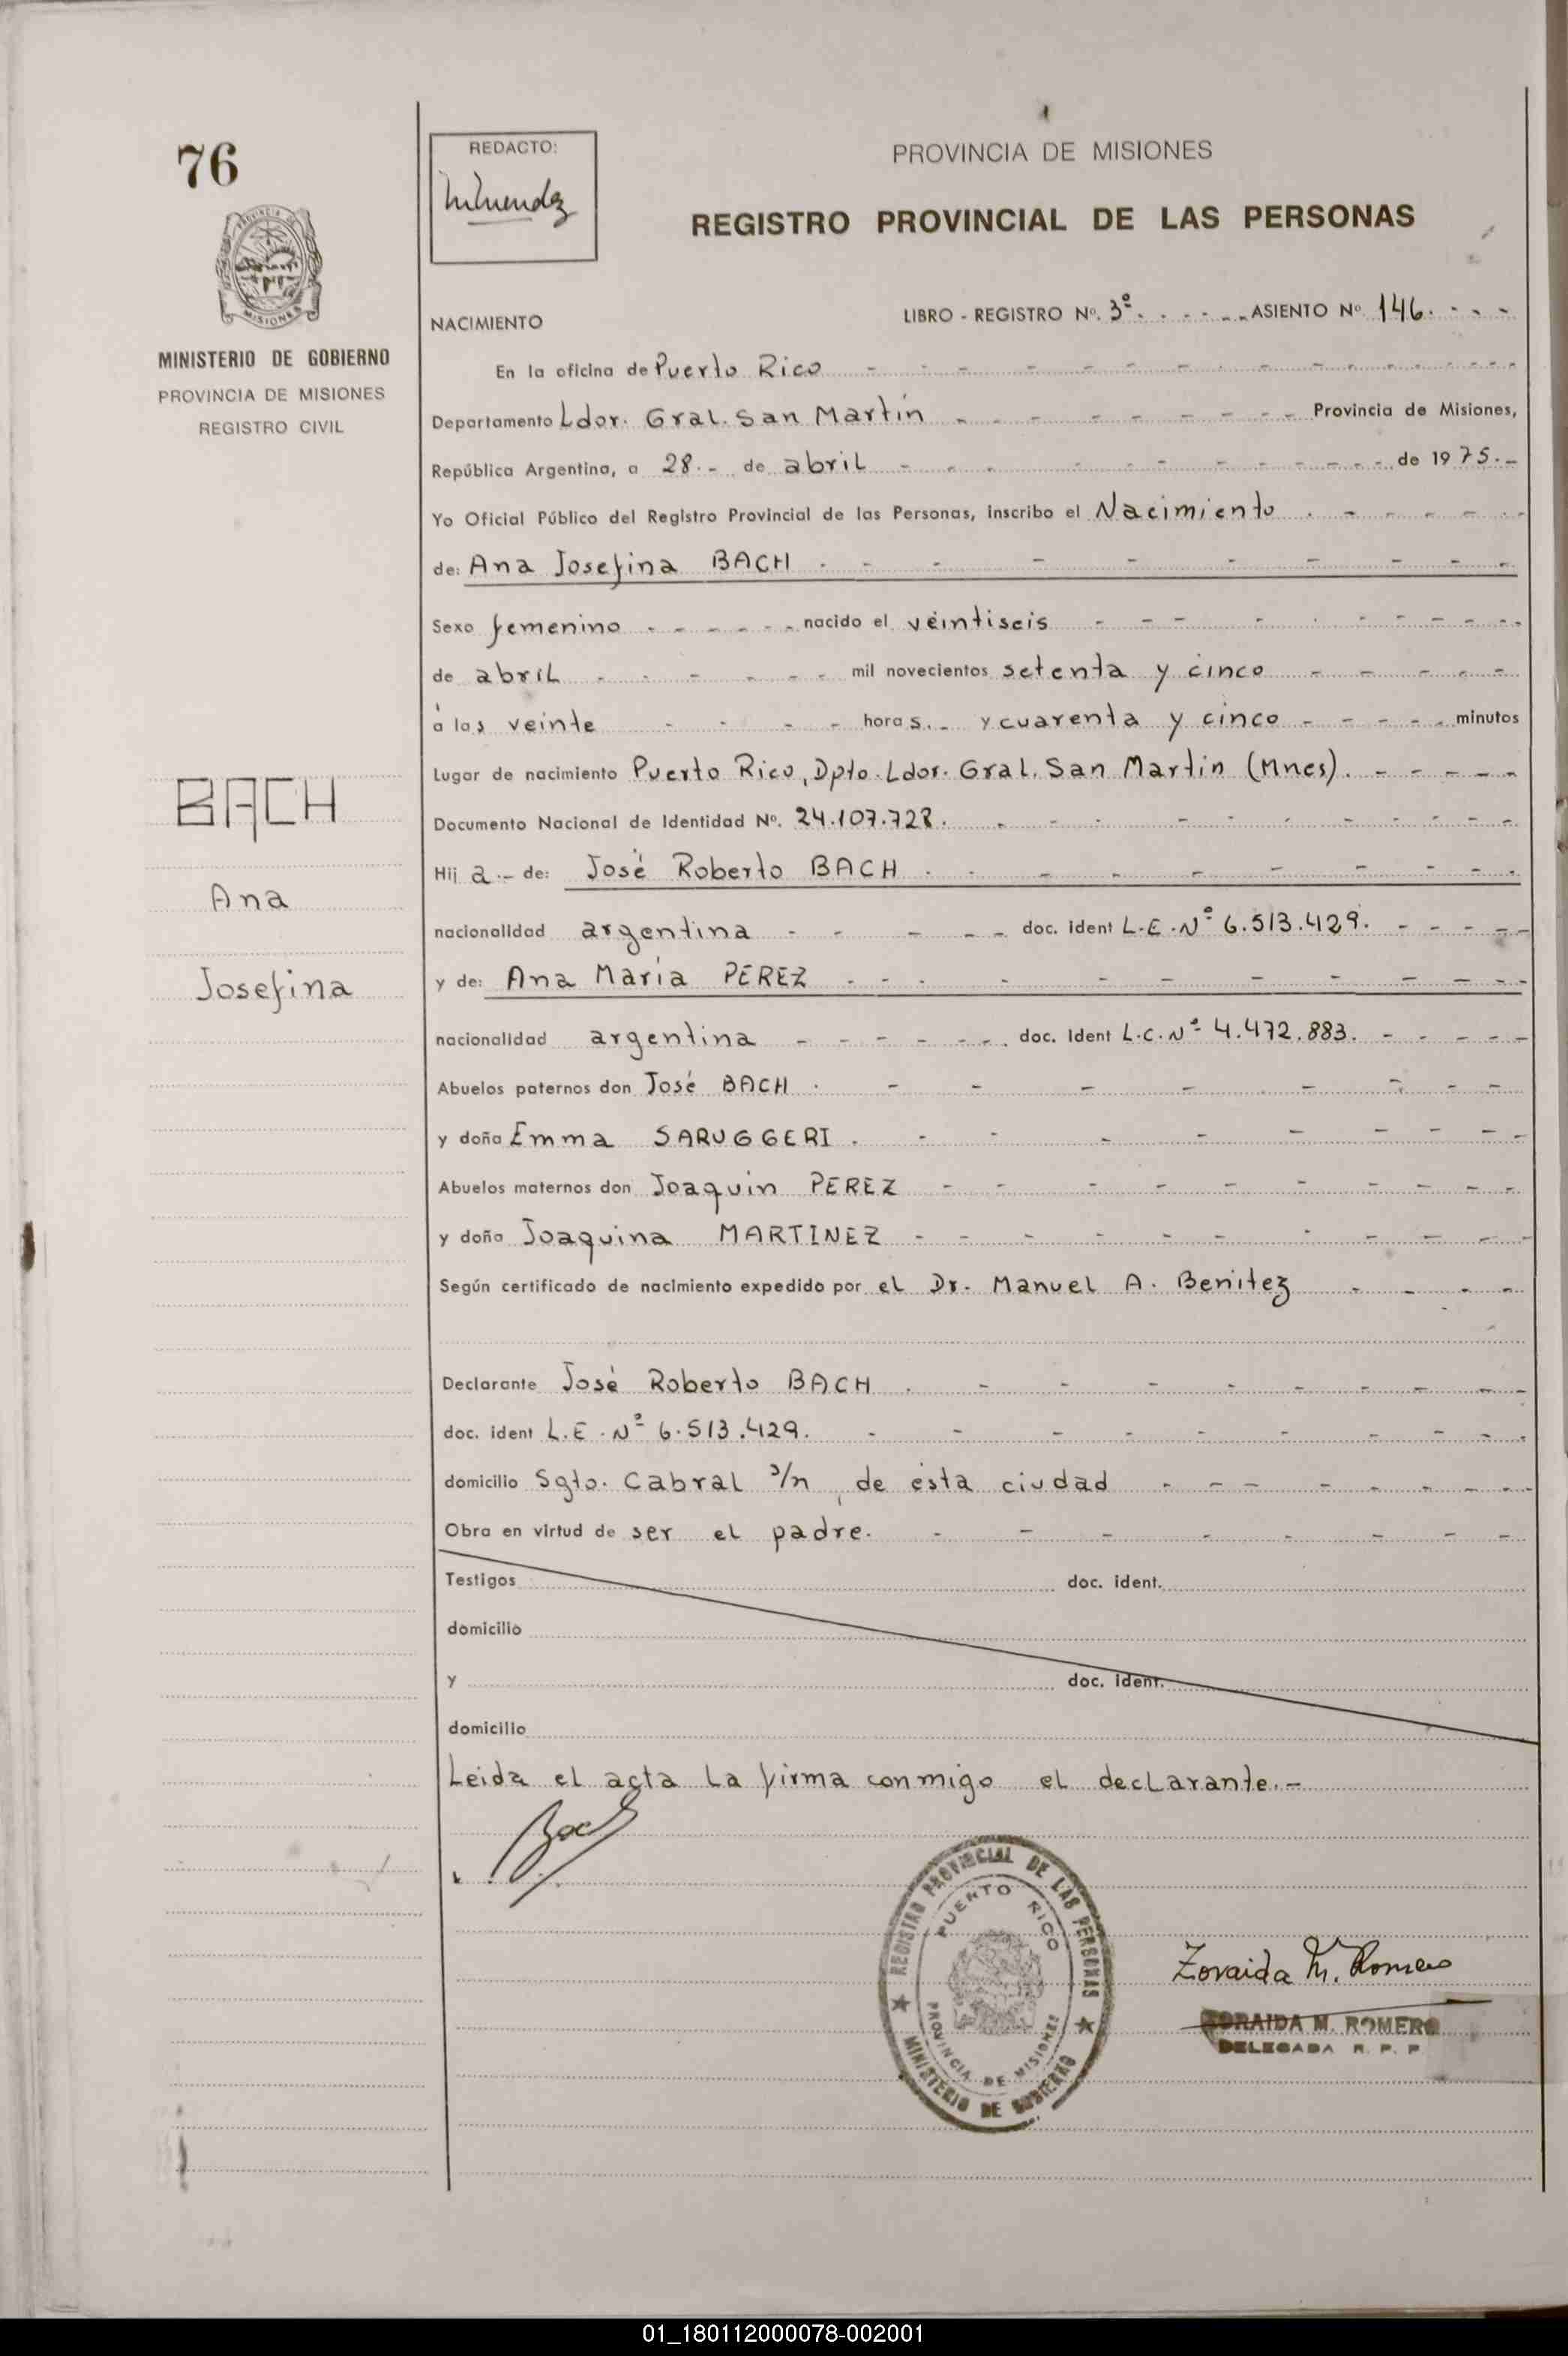 76
MISIONES
MINISTERIO DE GOBIERNO
PROVINCIA DE MISIONES
REGISTRO CIVIL
BACH
Ana
Josefina
REDACTO:
PROVINCIA DE MISIONES
REGISTRO PROVINCIAL DE LAS PERSONAS
NACIMIENTO LIBRO - REGISTRO Nº. 3º. ASIENTO Nº 146.
En la oficina de Puerto Rico
Departamento Ldor. Gral. San Martín Provincia de Misiones,
República Argentina, a 28.- de abril de 1975.-
Yo Oficial Público del Registro Provincial de las Personas, inscribo el Nacimiento
de: Ana Josefina BACH
Sexo femenino nacido el veintiseis
de abril mil novecientos setenta y cinco
a las veinte horas.- y cuarenta y cinco minutos
Lugar de nacimiento Puerto Rico, Dpto. Ldor. Gral. San Martin (Mnes).
Documento Nacional de Identidad Nº. 24.107.728.
Hija.- de: José Roberto BACH
nacionalidad argentina doc. ident L.E.Nº 6.513.429.
y de: Ana María PEREZ
nacionalidad argentina doc. Ident L.C.Nº 4.472.883.
Abuelos paternos don José BACH
y doña Emma SARUGGERI
Abuelos maternos don Joaquin PEREZ
y doña Joaquina MARTINEZ
Según certificado de nacimiento expedido por el Dr. Manuel A. Benitez
Declarante José Roberto BACH
doc. ident L.E.Nº 6.513.429.
domicilio Sgto. Cabral s/n, de esta ciudad
Obra en virtud de ser el padre.
Testigos doc. ident.
domicilio
y doc. ident.
domicilio
Leida el acta la firma conmigo el declarante.-
Bach
REGISTRO PROVINCIAL DE LAS PERSONAS
PUERTO RICO
PROVINCIA DE MISIONES
MINISTERIO DE GOBIERNO
Zoraida M. Romero
ZORAIDA M. ROMERO
DELEGADA R. P. P
01_180112000078-002001